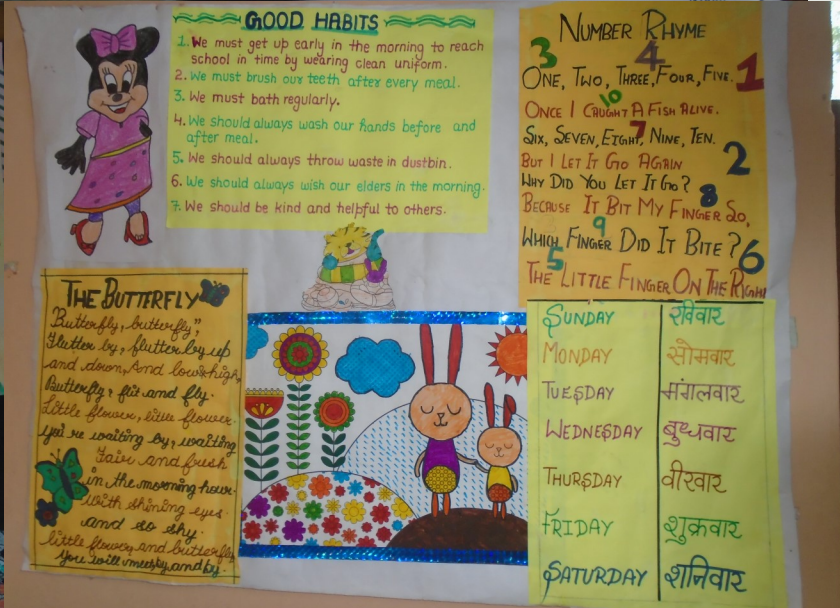 GOOD HABITS
1. We must get up early in the morning to reach
school in time by wearing clean uniform.
2. We must brush our teeth after every meal.
3. We must bath regularly.
4. We should always wash our hands before and
after meal.
5. We should always throw waste in dustbin.
6. We should always wish our elders in the morning.
7. We should be kind and helpful to others.
NUMBER RHYME
3 4
ONE, TWO, THREE, FOUR, FIVE. 1
10
ONCE I CAUGHT A FISH ALIVE.
SIX, SEVEN, EIGHT, NINE, TEN. 7
BUT I LET IT GO AGAIN 2
WHY DID YOU LET IT GO? 8
BECAUSE IT BIT MY FINGER SO,
9
WHICH FINGER DID IT BITE? 6
5
THE LITTLE FINGER ON THE RIGHT
THE BUTTERFLY
Butterfly, butterfly,
Flutter by, flutter by up
and down, And low high,
Butterfly, flit and fly.
Little flower, little flower
you're waiting by, waiting
Fair and fresh
in the morning hour.
with shining eyes.
and so shy.
little flower, and butterfly
You will meet by and by.
SUNDAY रविवार
MONDAY सोमवार
TUESDAY मंगलवार
WEDNESDAY बुधवार
THURSDAY वीरवार
FRIDAY शुक्रवार
SATURDAY शनिवार